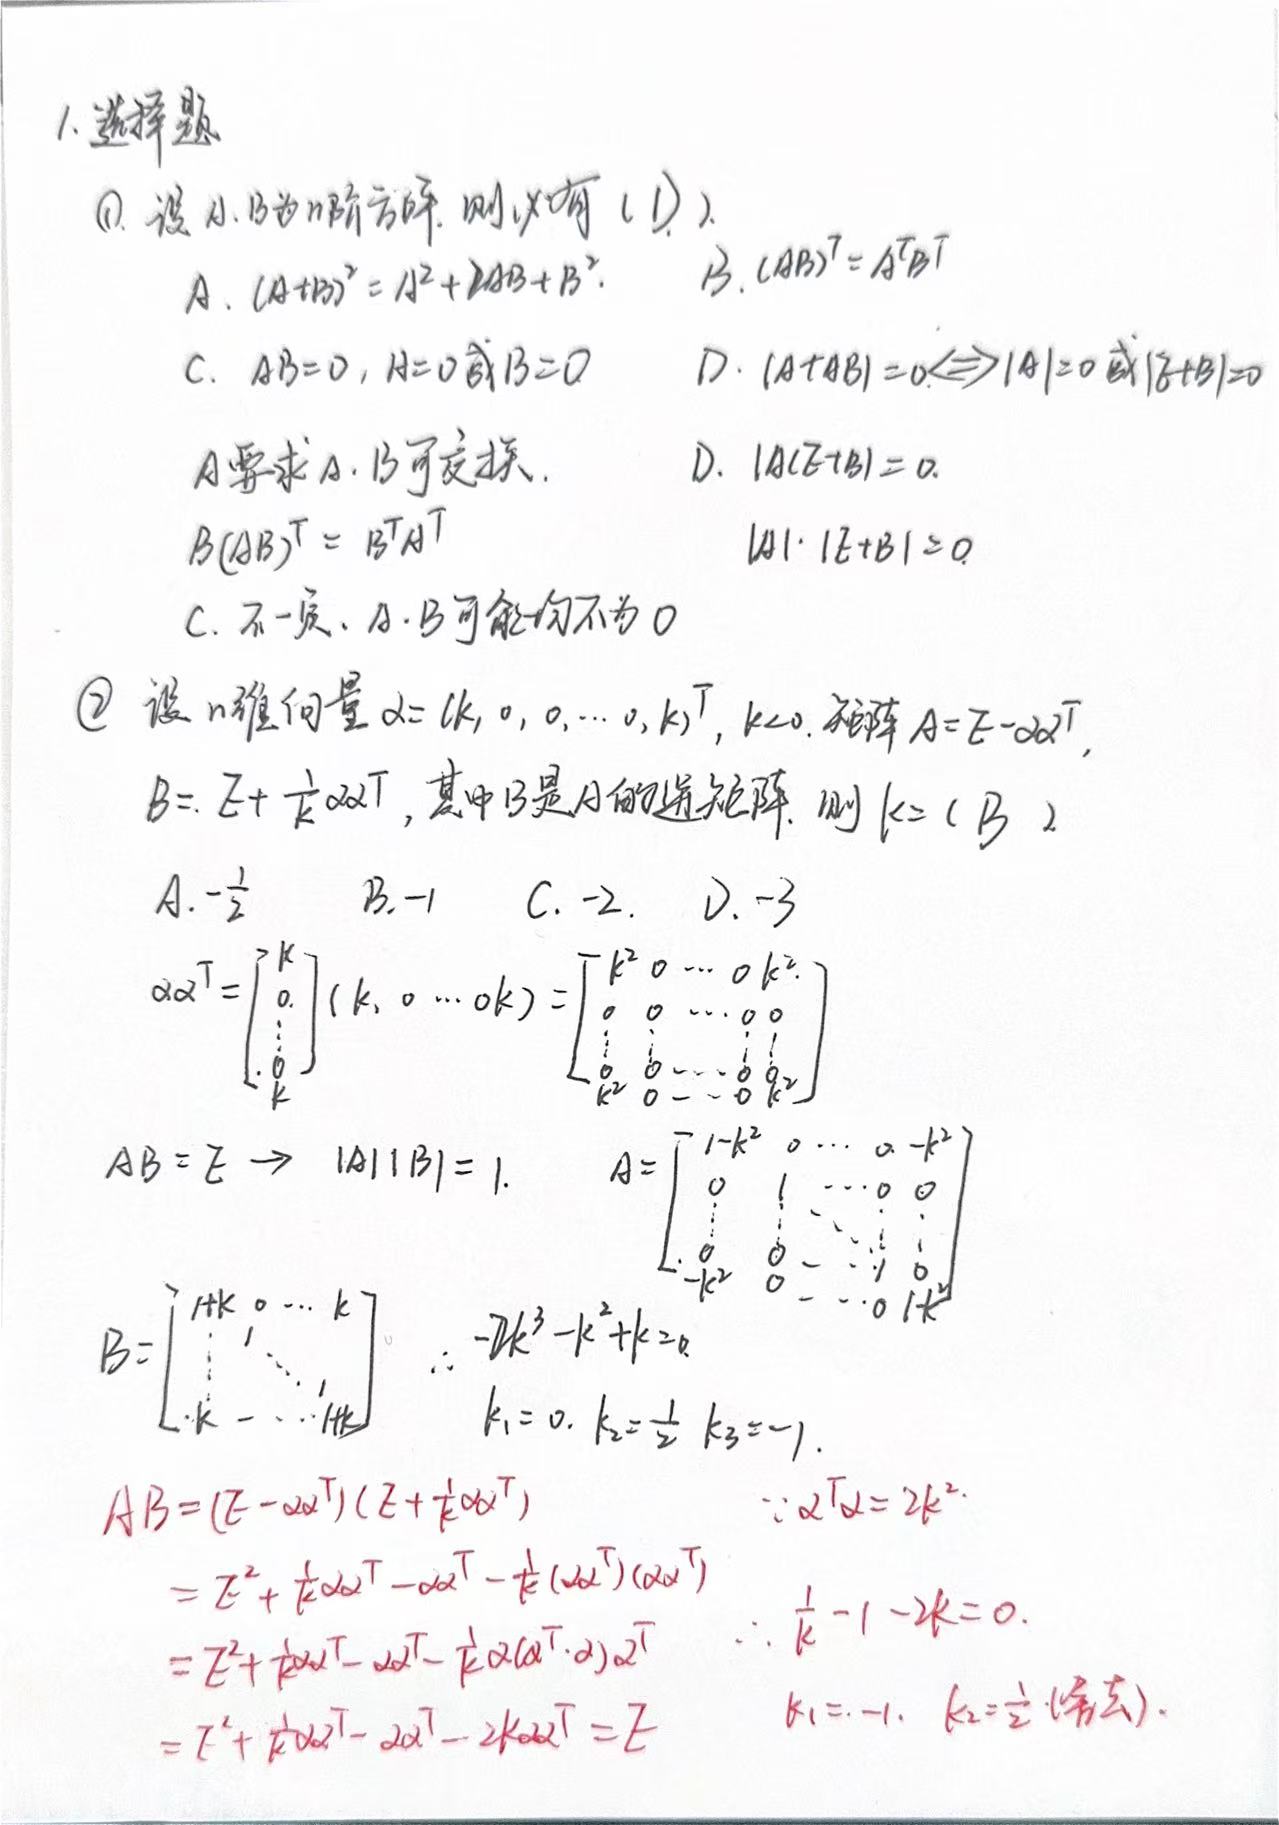 1. 选择题
①. 设A.B为n阶方阵. 则必有 (D).
A. (A+B)² = A² + 2AB + B². B. (AB)ᵀ = AᵀBᵀ
C. AB=0, A=0或B=0 D. |A+AB|=0 ⟺ |A|=0 或|E+B|=0
A要求A.B可交换. D. |A(E+B)| = 0.
B(AB)ᵀ = BᵀAᵀ |A|·|E+B| = 0.
C. 不一定. A.B可能均不为0
② 设n维向量α=(k, 0, 0, … 0, k)ᵀ, k<0. 矩阵 A=E-ααᵀ,
B= E+ 1/k ααᵀ, 其中B是A的逆矩阵. 则 k=( B )
A. -1/2 B. -1 C. -2. D. -3
ααᵀ = [k 0. ⋮ 0 k] (k, 0 … 0 k) = [k² 0 … 0 k². 0 0 … 0 0 ⋮ ⋮ ⋮ ⋮ 0 0 … 0 0 k² 0 … 0 k²]
AB = E → |A||B| = 1. A= [1-k² 0 … 0 -k² 0 1 … 0 0 ⋮ ⋮ ⋱ ⋮ ⋮ 0 0 … 1 0 -k² 0 … 0 1-k²]
B= [1+k 0 … k ⋮ 1 ⋱ 1 k … 1+k] ∴ -2k³-k²+k=0.
k₁=0. k₂=1/2 k₃=-1.
AB = (E-ααᵀ)(E+1/k ααᵀ) ∵ αᵀα = 2k².
= E² + 1/k ααᵀ - ααᵀ - 1/k (ααᵀ)(ααᵀ)
∴ 1/k - 1 - 2k = 0.
= E² + 1/k ααᵀ - ααᵀ - 1/k α(αᵀ·α)αᵀ
k₁ = -1. k₂ = 1/2 (舍去).
= E² + 1/k ααᵀ - ααᵀ - 2kααᵀ = E